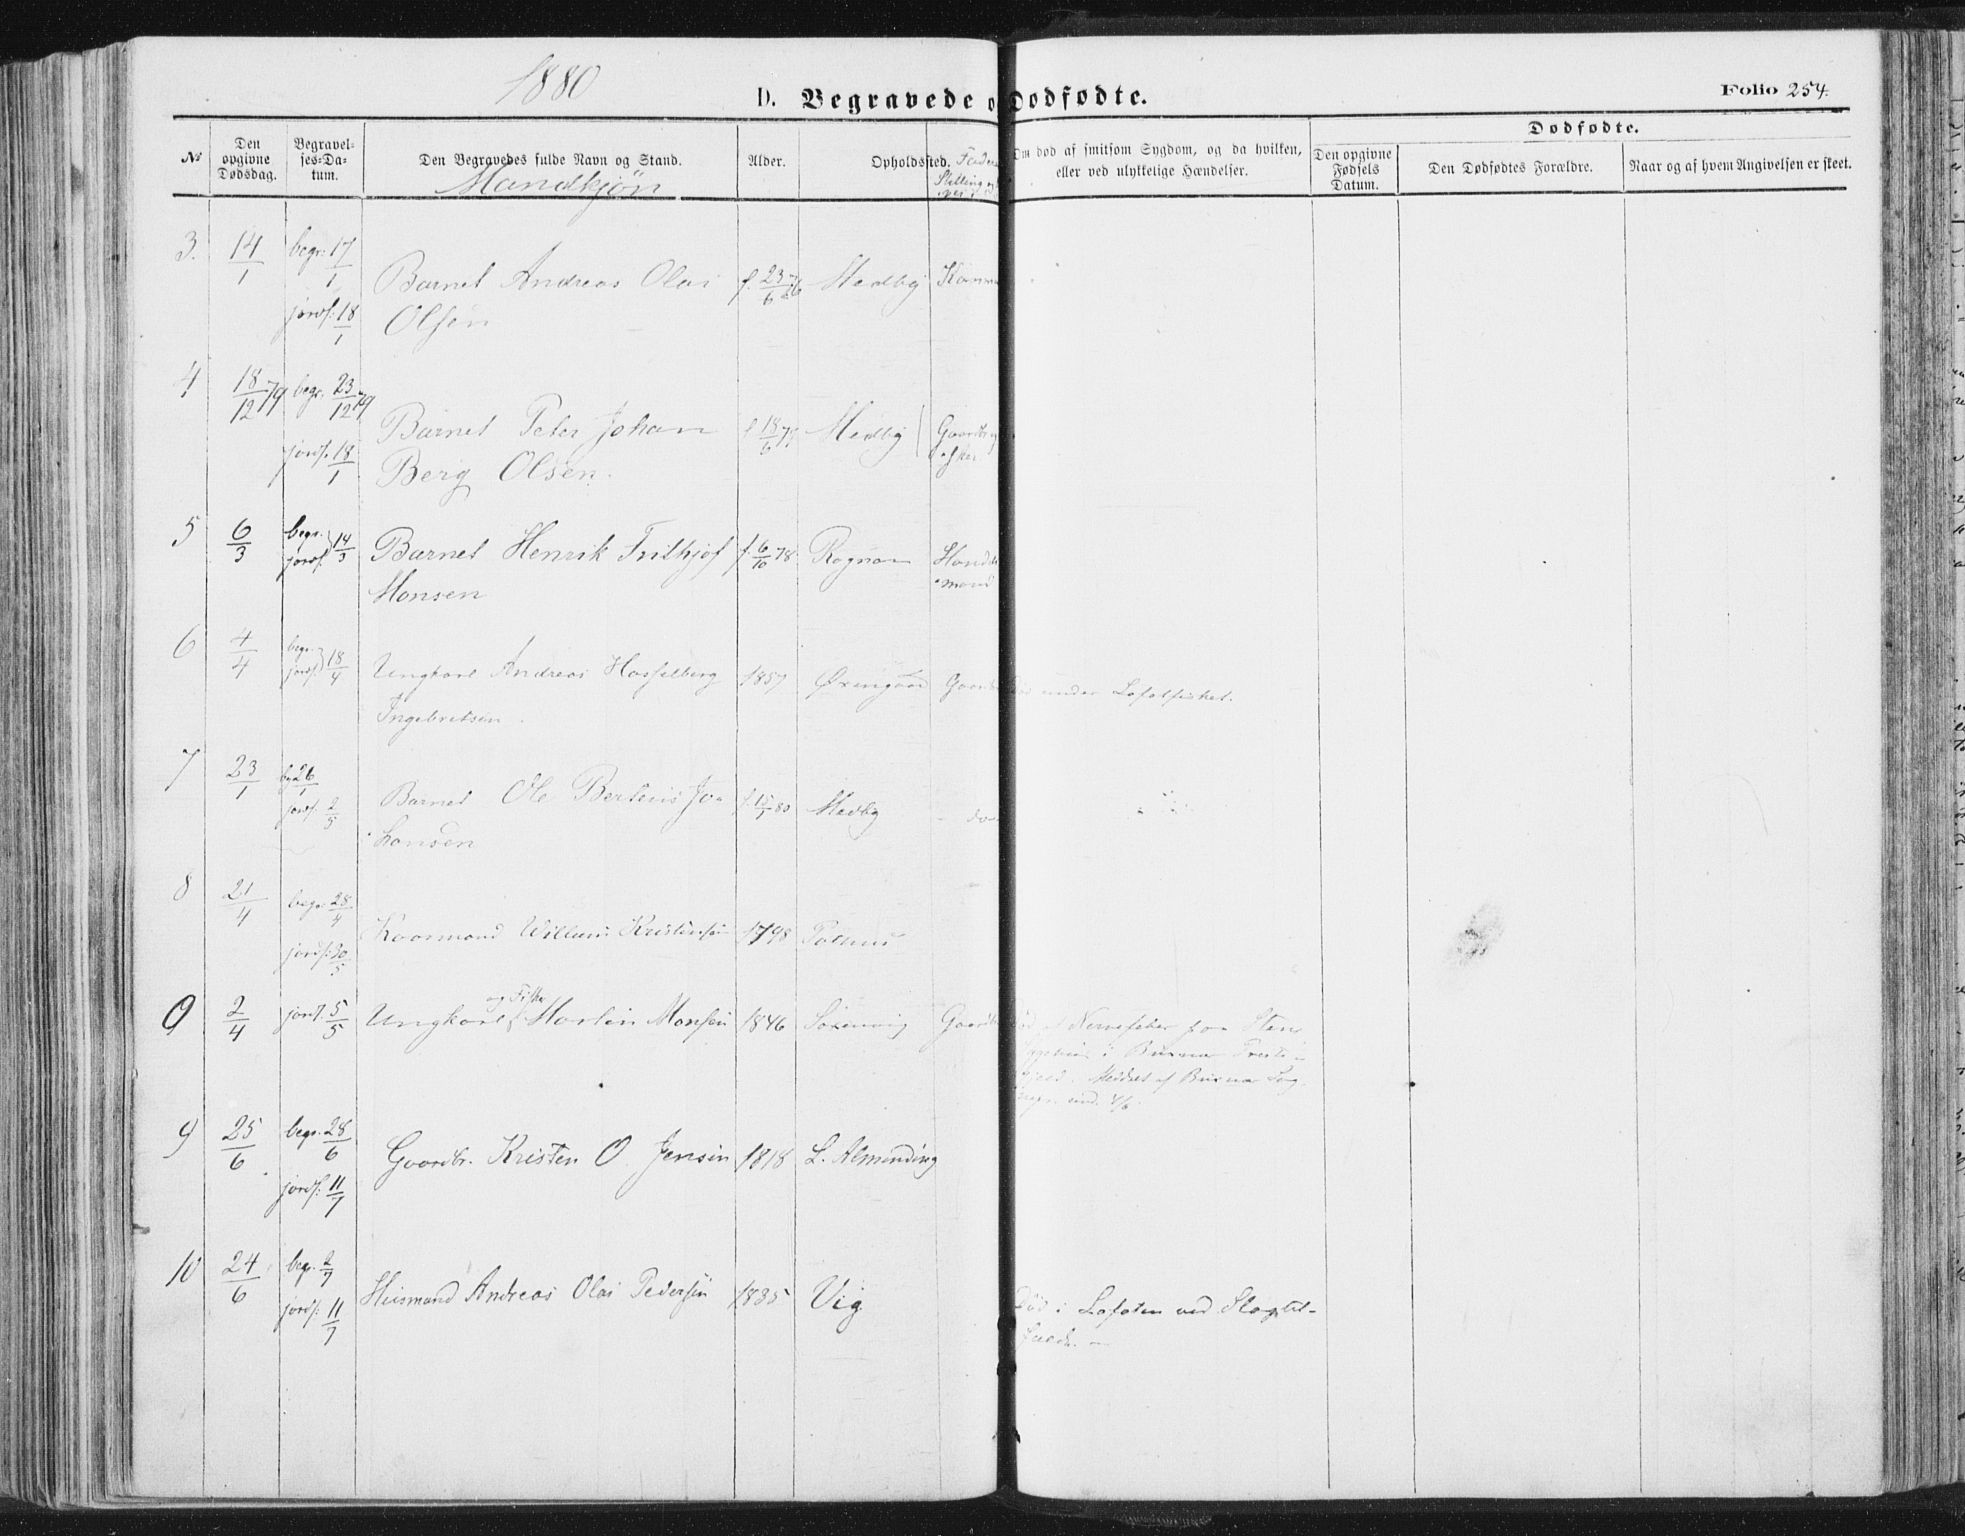 1880
D. Begravede o Dødfødte.
Folio 254.
Dødfødte.
№ Den opgivne Dødsdag. Begravelses-Datum. Den Begravedes fulde Navn og Stand. Alder. Opholdssted. Om død af smitsom Sygdom, og da hvilken, eller ved ulykkelige Hændelser. Den opgivne Fødsels Datum. Den Dødfødtes Forældre. Naar og af hvem Angivelsen er skeet.
Mandkjøn
3. 14/1 begr: 17/1 jordf: 18/1
Barnet Andreas Olai f. 23/6 76 Medby
Olsen
4 18/12 79 begr. 23/12 79 jordf. 18/1
Barnet Peter Johan f 18/6 79 Medby Gaardbr
Berg Olsen.
5 6/3 begr. jordf. 14/3 Barnet Henrik Frithjof f. 6/10 78 Rognan
Monsen mand
6 4/4 begr. jordf. 18/4 Ungkarl Andreas Hasselberg 1857 Øxengaard Gaardbr under Lofotfisket.
Ingebretsen
7 23/1 26/1 jordf. 2/5 Barnet Ole Bertinus Jo- f. 80 Medby do
hansen
8 21/4 begr. 28/4 jordf: 30/5
Kaarmand Willum Kristensen 1798
og Fisker
9 2/4 jordf. 5/5 Ungkarl Martin Monsen 1846 Saxenvig Gaardbr Nervefeber paa
i Buxnæs Præste-
gjeld. Meddelt af Buxnæs Sog-
9 25/6 begr. 28/6 jordf: 11/7 Gaardbr. Kristen O. Jensen 1818 L. Almending
10 24/6 begr. 2/7 jordf: 11/7 Huusmand Andreas Olai Pedersen 1835 Vig Død i Lofoten ved Slagtil-
fælde. —